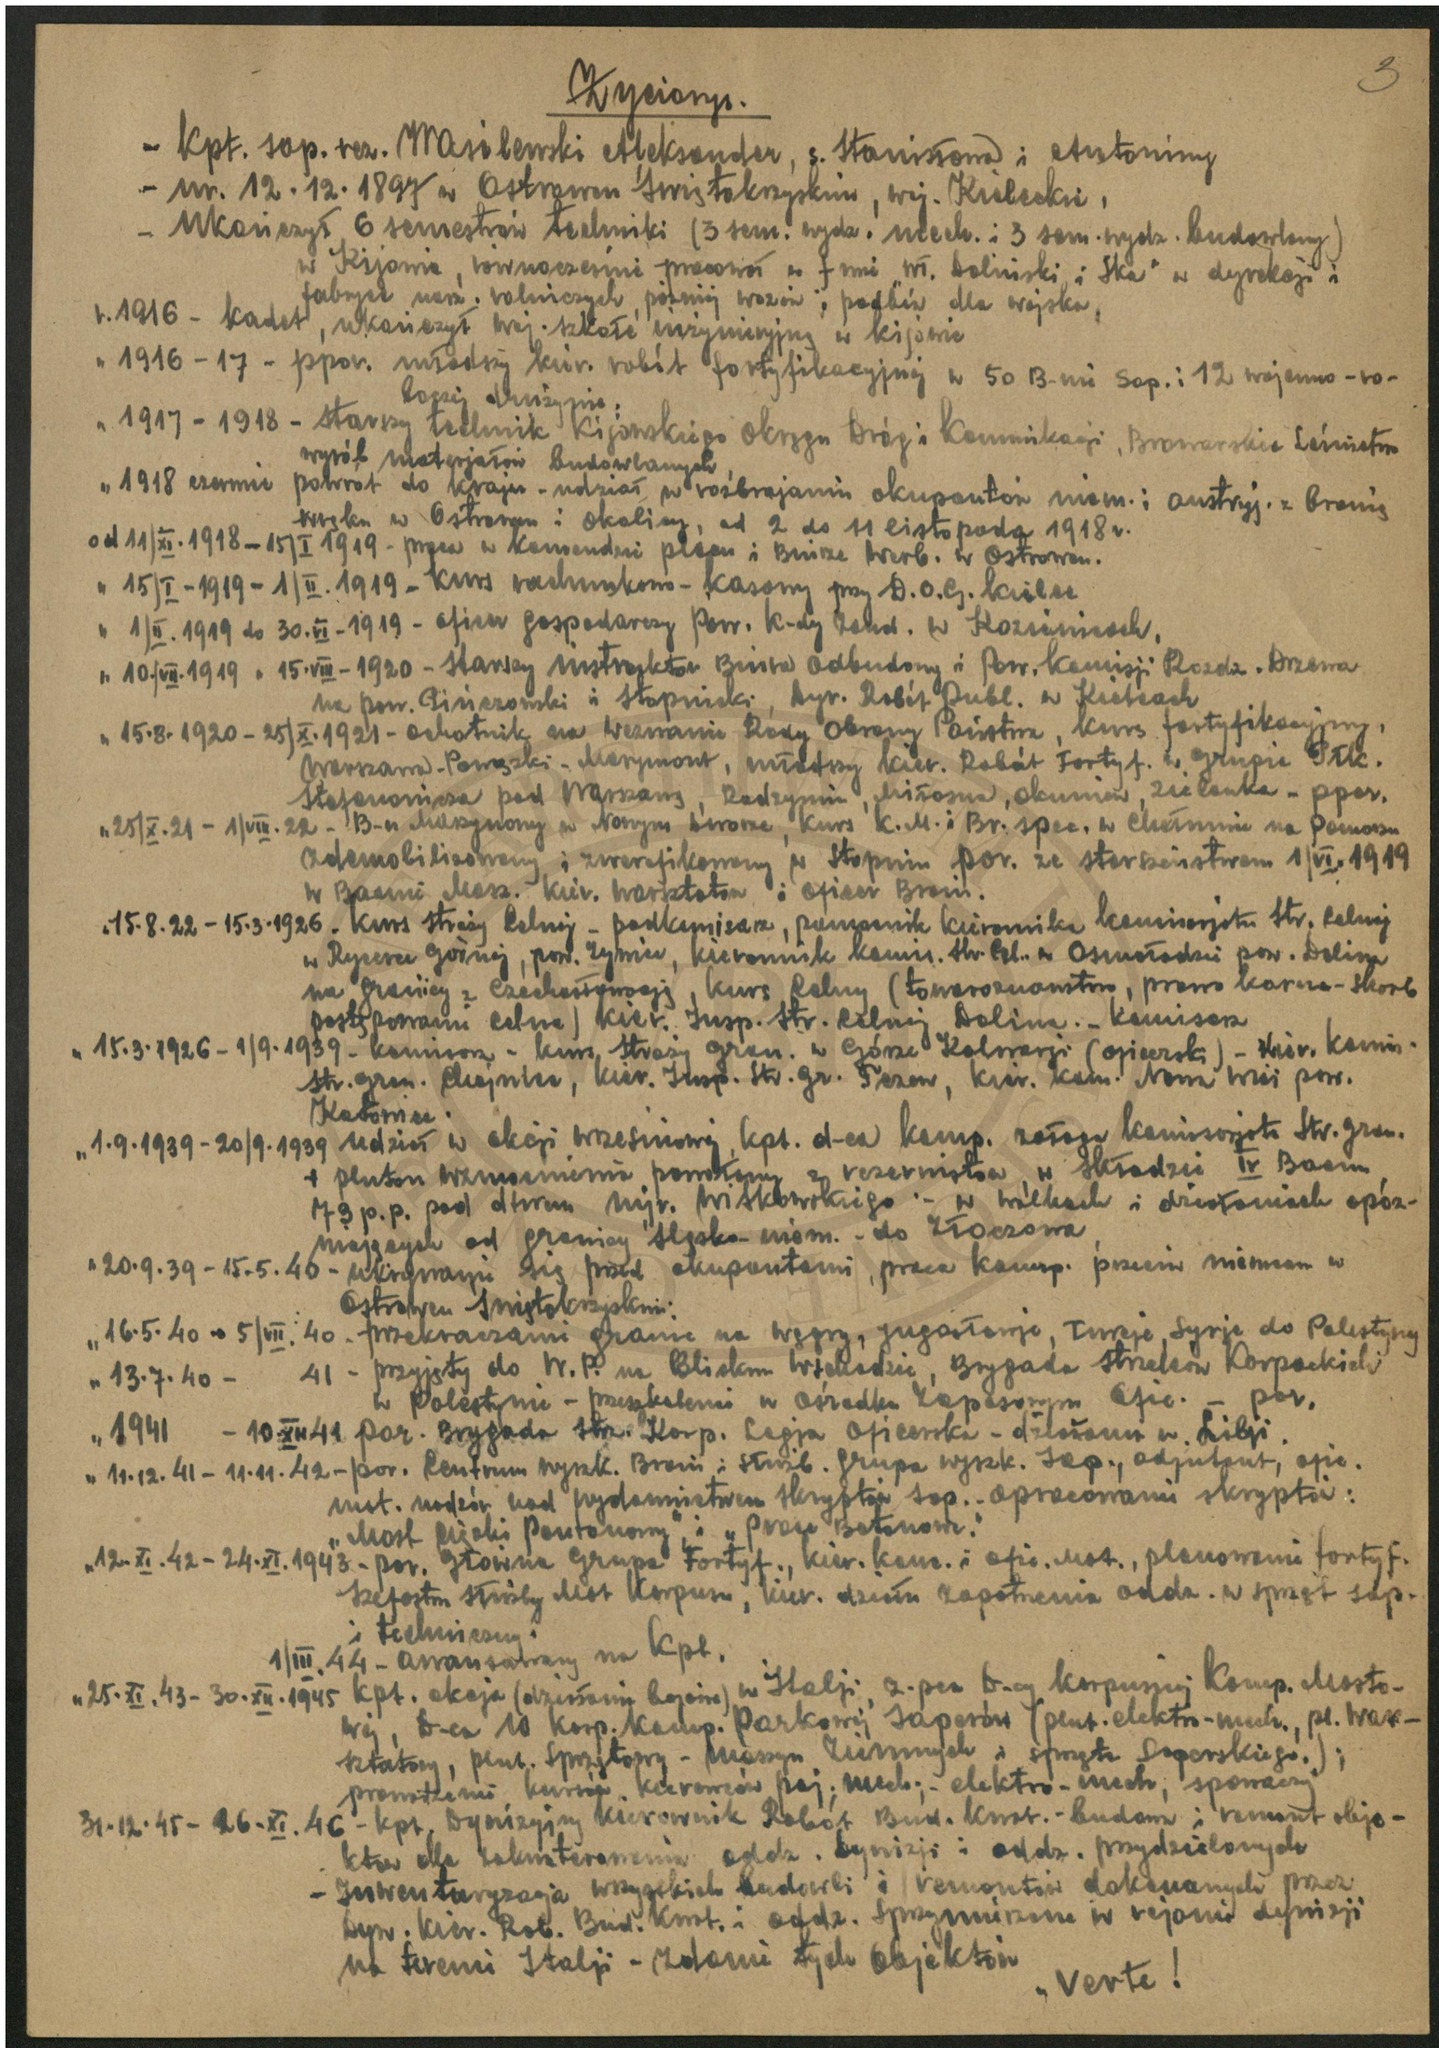 3
Życiorys.
- kpt. sap. rez. Wasilewski Aleksander, s. Stanisława i Antoniny
- ur. 12.12.1897 w Ostrowcu Świętokrzyskim, woj. Kieleckie,
- Ukończył 6 semestrów techniki (3 sem. wydz. mech. i 3 sem. wydz. budowlany)
w Kijowie, równocześnie pracował w f-mie „Wł. Doliński i Ska" w dyrekcji i
fabryce narz. rolniczych, później wozów i podków dla wojska,
r. 1916 - kadet, ukończył woj. szkołę inżynieryjną w Kijowie
" 1916 - 17 - ppor. młodszy kier. robót fortyfikacyjnej w 50 B-nie Sap. i 12 wojenno-ro-
boczej drużynie.
" 1917 - 1918 - starszy technik Kijowskiego Okręgu Dróg i Komunikacji, Browarskie Leśnictwo
wyrób materjałów budowlanych,
" 1918 czerwiec powrót do kraju - udział w rozbrajaniu okupantów niem. i austryj. z bronią
w ręku w Ostrowcu i okolicy, od 2 do 11 listopada 1918 r.
od 11/XI.1918 - 15/I 1919 - praca w komendzie placu i Biurze Werb. w Ostrowcu.
" 15/I - 1919 - 1/II.1919 - kurs rachunkowo-kasowy przy D.O.G. Kielce
" 1/II.1919 do 30.VI-1919 - oficer gospodarczy Pow. K-dy Żand. w Kozienicach,
" 10/VII.1919 " 15.VIII-1920 - starszy instruktor Biura Odbudowy i Pow. Komisji Rozdz. Drzewa
na pow. Pińczowski i Stopnicki, Dyr. Robót Publ. w Kielcach
" 15.8.1920 - 25/X.1921 - ochotnik na wezwanie Rady Obrony Państwa, kurs fortyfikacyjny,
Warszawa-Powązki-Marymont, młodszy kier. Robót Fortyf. w grupie Płk.
Stefanowicza pod Warszawą, Radzymin, Miłosna, Okuniew, Zielonka - ppor.
" 25/X.21 - 1/VIII.22 - B-n Maszynowy w Nowym Dworze, kurs K.M. i Br. spec. w Chełmnie na Pomorzu
zdemobilizowany i zweryfikowany w stopniu por. ze starszeństwem 1/VI.1919
w Baonie Masz. - kier. warsztatów i oficer Broni.
" 15.8.22 - 15.3.1926 - kurs Straży Celnej - podkomisarz, pomocnik kierownika komisarjatu Str. Celnej
w Rycerce Górnej, pow. Żywiec, kierownik komis. Str. Cel. w Osmołodzie pow. Dolina
na granicy z Czechosłowacją, kurs Celny (towaroznawstwo, prawo karno-skarb
postępowanie celne) kier. Insp. Str. Celnej Dolina. - komisarz
" 15.3.1926 - 1/9.1939 - komisarz - kurs Straży Gran. w Górze Kalwarji (oficerski) - kier. komis.
Str. Gran. Chojnice, kier. Insp. Str. Gr. Tczew, kier. kom. Nowa Wieś pow.
Katowice.
" 1.9.1939 - 20/9.1939 udział w akcji wrześniowej, kpt. d-ca komp. załoga komisarjatu Str. Gran.
+ pluton wzmocnienia powołany z rezerwistów w składzie IV Baonu
73 p.p. pod dtwem mjr. Witkowskiego - w walkach i działaniach opóź-
niających od granicy śląsko-niem. - do Złoczowa
" 20.9.39 - 15.5.40 - ukrywanie się przed okupantami, praca konsp. przeciw niemcom w
Ostrowcu Świętokrzyskim.
" 16.5.40 - 5/VII.40 - przekraczanie granic na Węgry, Jugosławję, Turcję, Syrję do Palestyny
" 13.7.40 - 41 - przyjęty do W.P. na Bliskim Wschodzie, Brygada Strzelców Karpackich
w Palestynie - przeszkolenie w Ośrodku Zapasowym Ofic. - por.
" 1941 - 10.XII 41 por. Brygada Strz. Karp. Legja Oficerska - działania w Libji.
" 11.12.41 - 11.11.42 - por. Centrum Wyszk. Broni i Służb. Grupa wyszk. Sap., adjutant, ofic.
mat. nadzór nad wydawnictwem skryptów sap. - opracowanie skryptów:
„Most Ciężki Pontonowy" i „Prace Betonowe."
" 12-XI.42 - 24.XI.1943 - por. Główna Grupa Fortyf., kier. kanc. i ofic. Mat., planowanie fortyf.
Szefostw służby Mat Korpusu, kier. działu zaopatrzenia oddz. w sprzęt sap.
i techniczny.
1/III.44 - awansowany na kpt.
" 25.XI.43 - 30.XII.1945 kpt. akcja (działania bojowe) w Italji, z-pca D-cy korpuśnej Komp. Mosto-
wej, D-ca 10 Korp. Komp. Parkowej Saperów (plut. elektro-mech., pl. War-
sztatowy, plut. Sprzętowy - Maszyn Ziemnych i sprzętu Saperskiego.);
prowadzenie kursów kierowców poj. mech. - elektro-mech, spawaczy
31.12.45 - 26-XI.46 - kpt. Dywizyjny Kierownik Robót Bud. Kwat. - budowa i remont obje-
któw dla zakwaterowania oddz. Dywizji i oddz. przydzielonych
- Inwentaryzacja wszystkich budowli i remontów dokonanych przez
Dyw. Kier. Rob. Bud. Kwat. i oddz. Sprzymierzone w rejonie dywizji
na terenie Italji - zdanie tych objektów
„Verte!